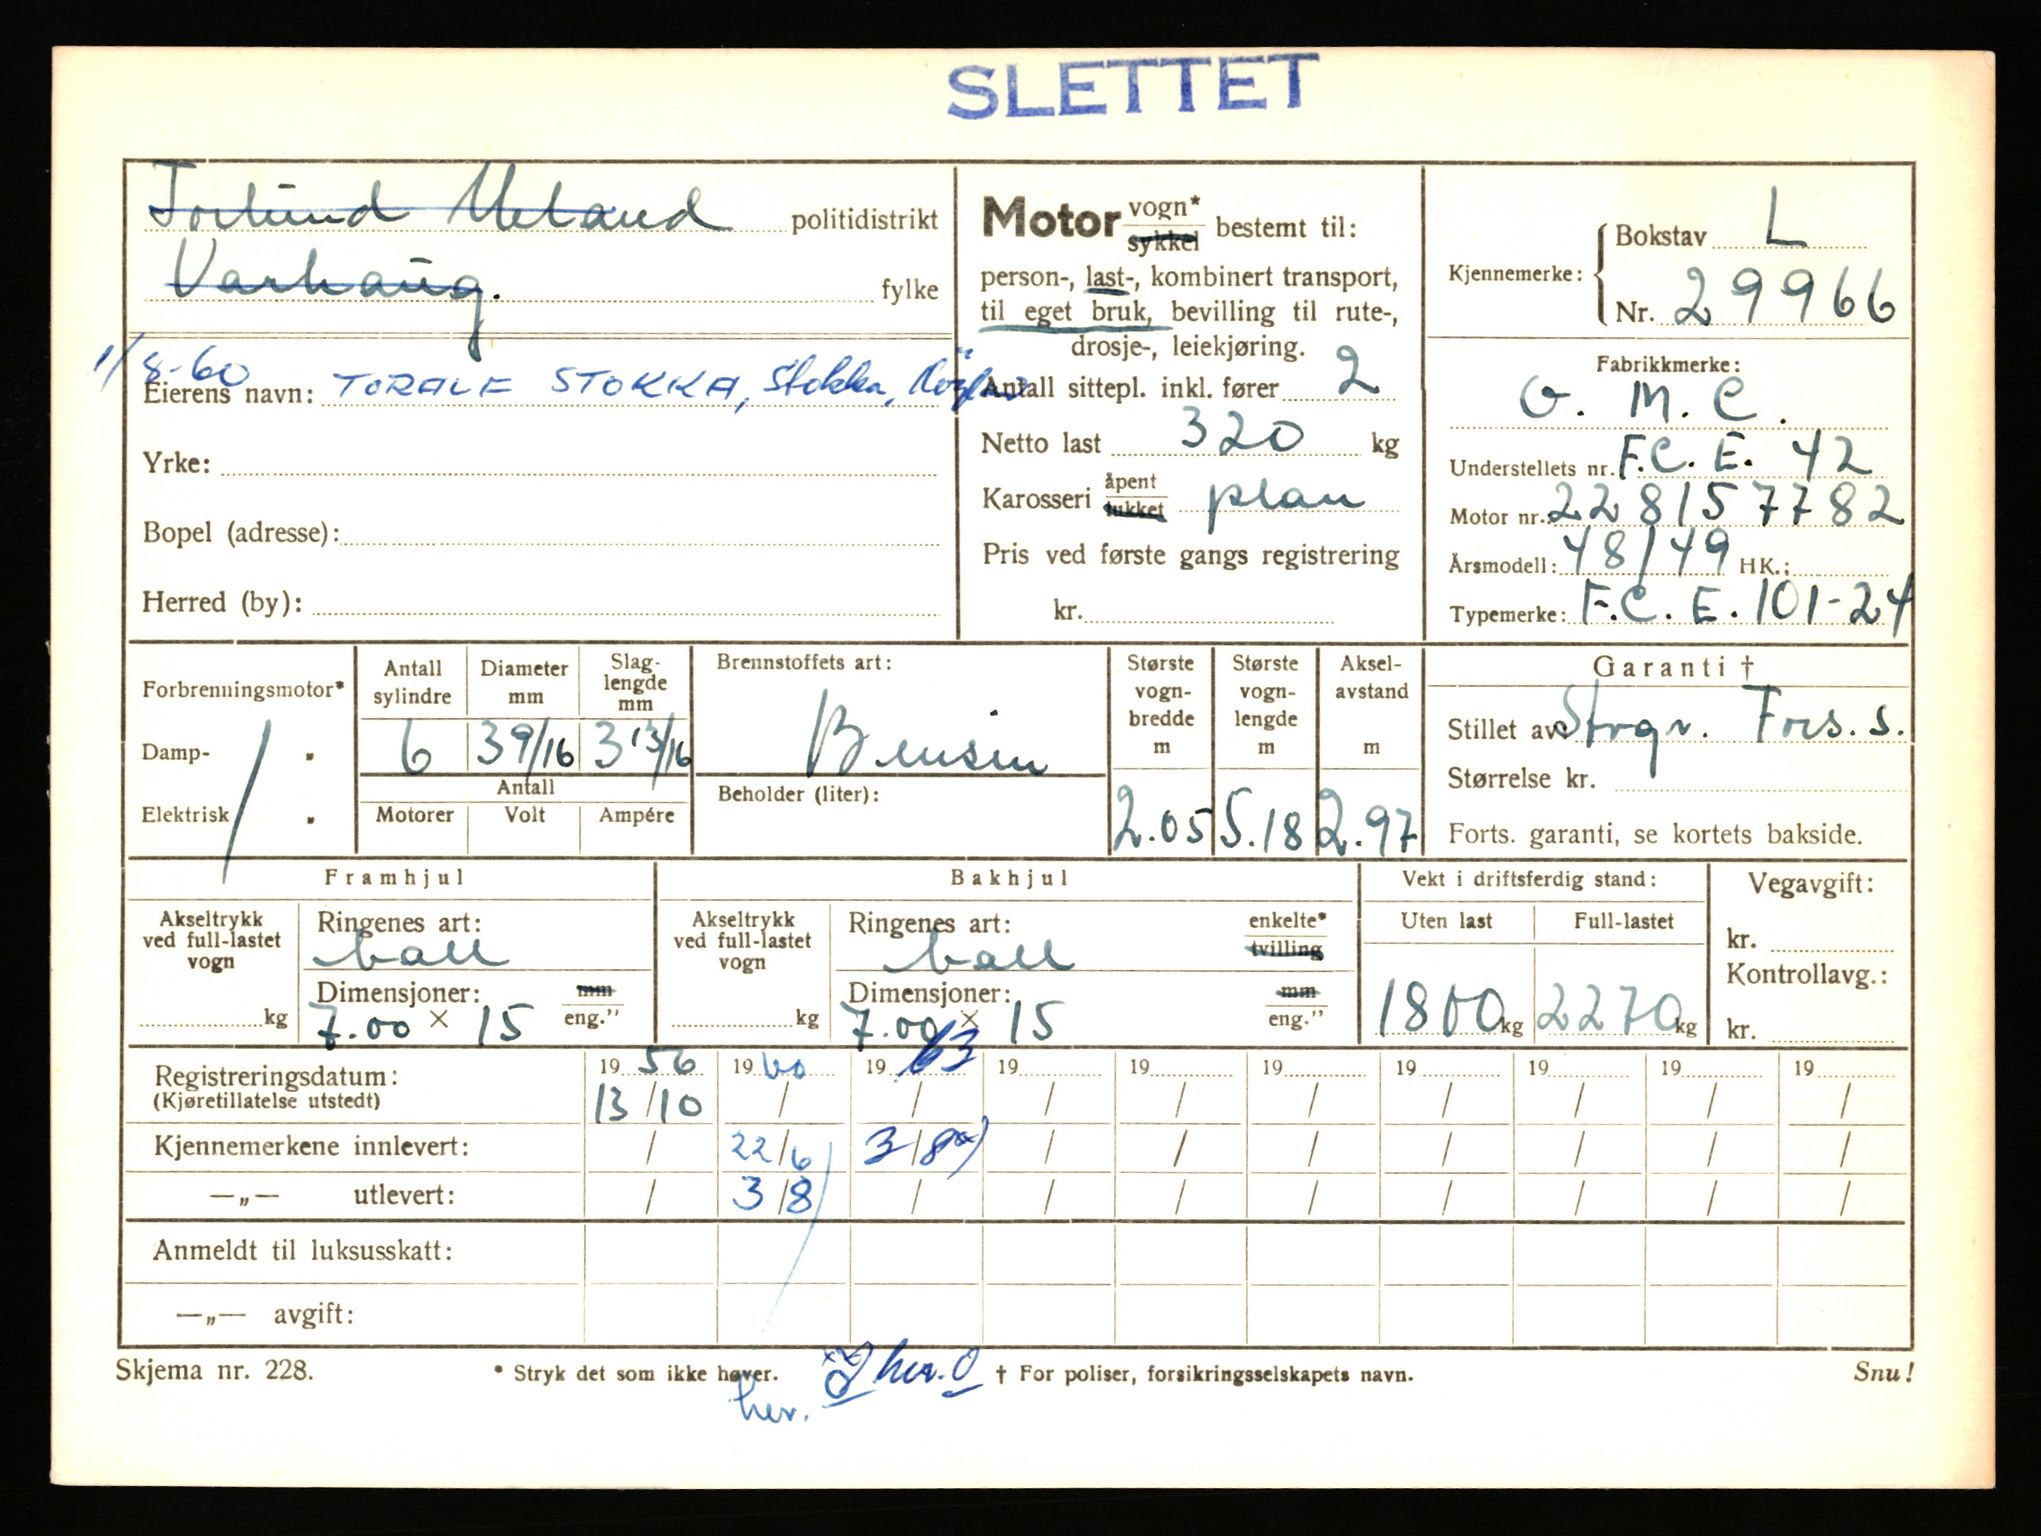 SLETTET
Torlund Meland politidistrikt
Varhaug. fylke
1/8-60
Eierens navn: TORALF STOKKA, Stokka,
Yrke:
Bopel (adresse):
Herred (by):
Motor vogn* sykkel bestemt til:
person-, last-, kombinert transport,
til eget bruk, bevilling til rute-,
drosje-, leiekjøring.
Antall sittepl. inkl. fører 2
Netto last 320 kg
Karosseri åpent lukket plan
Pris ved første gangs registrering
kr.
Kjennemerke: Bokstav L
Nr. 29966
Fabrikkmerke:
G. M. C.
Understellets nr. F.C. E. 42
Motor nr.: 228157782
Årsmodell: 48/49 HK.:
Typemerke: F.C. E. 101-24
Forbrenningsmotor*
Damp- "
Elektrisk "
Antall sylindre Diameter mm Slag-lengde mm
6 39/16 3 13/16
Antall
Motorer Volt Ampére
Brennstoffets art:
Bensin
Beholder (liter):
Største vogn-bredde m Største vogn-lengde m Aksel-avstand m
2.05 5.18 2.97
Garanti †
Stillet av Strgr. Fors. s.
Størrelse kr.
Forts. garanti, se kortets bakside.
Framhjul
Akseltrykk ved full-lastet vogn
kg
Ringenes art:
ball
Dimensjoner: mm
7.00 × 15 eng."
Bakhjul
Akseltrykk ved full-lastet vogn
kg
Ringenes art: enkelte*
ball tvilling
Dimensjoner: mm
7.00 × 15 eng."
Vekt i driftsferdig stand:
Uten last Full-lastet
1800 kg 2270 kg
Vegavgift:
kr.
Kontrollavg.:
kr.
Registreringsdatum: 19 56 19 60 19 63 19 19 19 19 19 19 19
(Kjøretillatelse utstedt) 13/10 / / / / / / / / /
Kjennemerkene innlevert: / 22/6 3/8 x) / / / / / / /
—„— utlevert: / 3/8 / / / / / / / /
Anmeldt til luksusskatt:
—„— avgift:
Skjema nr. 228. * Stryk det som ikke høver. † For poliser, forsikringsselskapets navn. Snu!
her.